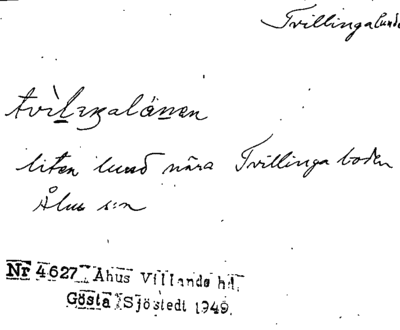 Tvillingalunde
liten lund nära Tvillinga boden
Åhus s:n
Nr 4627 Åhus Villands hd.
Gösta Sjöstedt 1949.